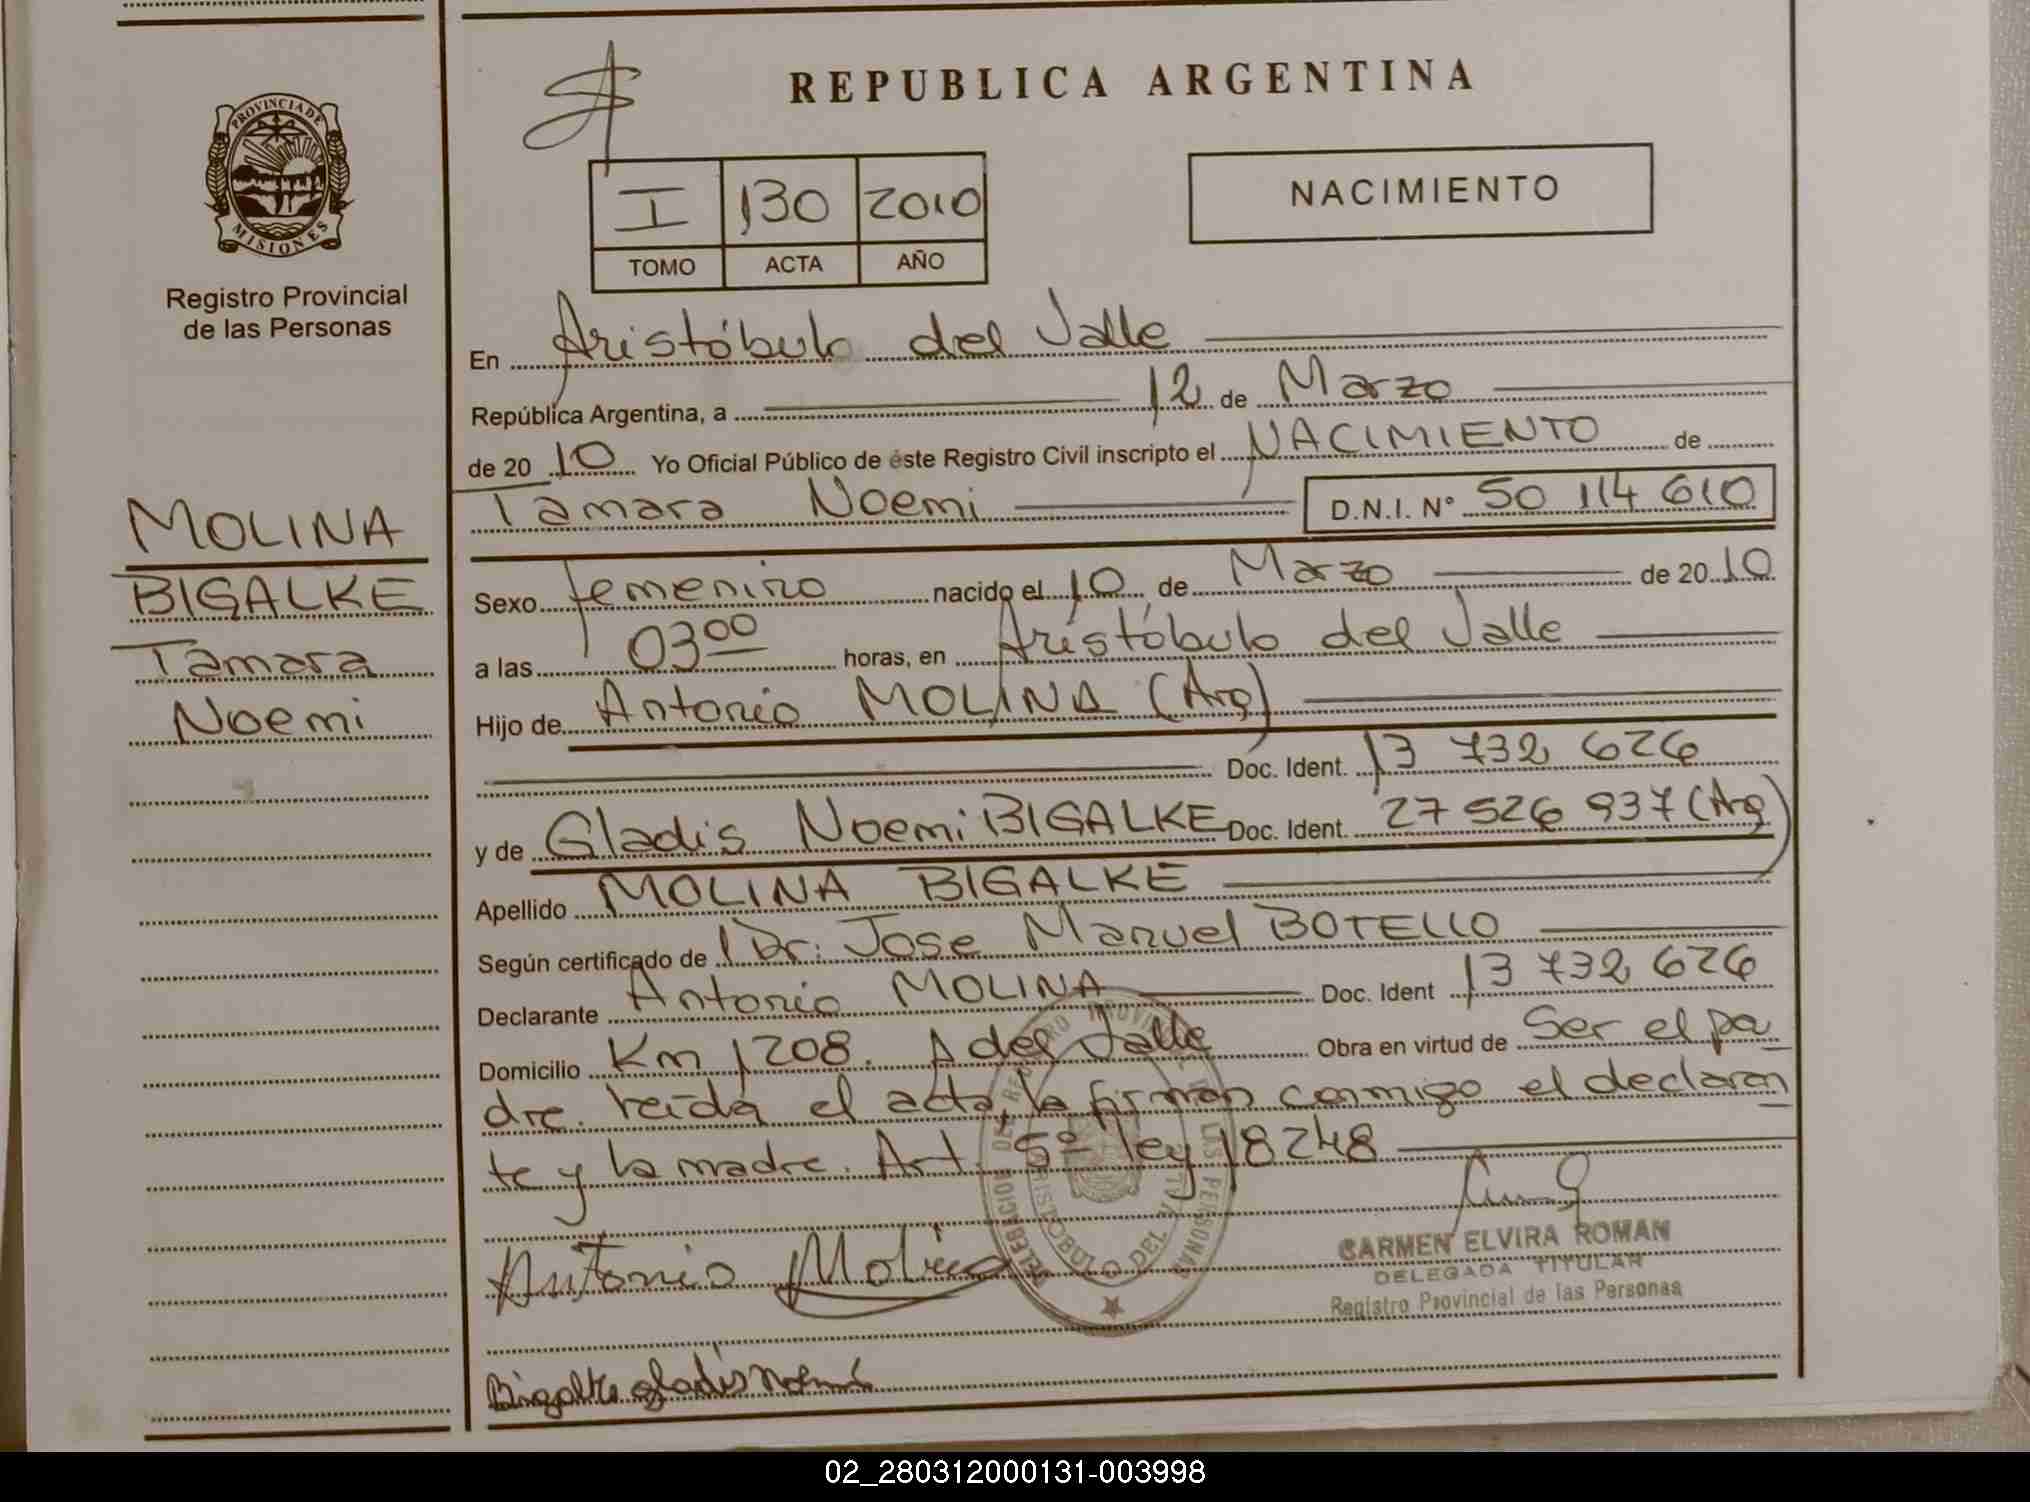 REPUBLICA ARGENTINA
PROVINCIA DE
MISIONES
Registro Provincial
de las Personas
I 130 2010
TOMO ACTA AÑO
NACIMIENTO
En Aristóbulo del Valle
República Argentina, a 12 de Marzo
de 20 10 Yo Oficial Público de éste Registro Civil inscripto el NACIMIENTO de
Tamara Noemi D.N.I. Nº 50 114 610
MOLINA
BIGALKE
Tamara
Noemi
Sexo femenino nacido el 10 de Marzo de 20 10
a las 03 00 horas, en Aristóbulo del Valle
Hijo de Antonio MOLINA (Arg)
Doc. Ident. 13 732 626
y de Gladis Noemi BIGALKE Doc. Ident. 27 526 937 (Arg)
Apellido MOLINA BIGALKE
Según certificado de Dr: Jose Manuel BOTELLO
Declarante Antonio MOLINA Doc. Ident 13 732 626
Domicilio Km 1208. A del Valle Obra en virtud de Ser el pa
dre. Leída el acta, la firman conmigo el declaran
te y la madre. Art. 5º ley 18248
Antonio Molina
CARMEN ELVIRA ROMAN
DELEGADA TITULAR
Registro Provincial de las Personas
Bigalke gladis Noemi
02_280312000131-003998